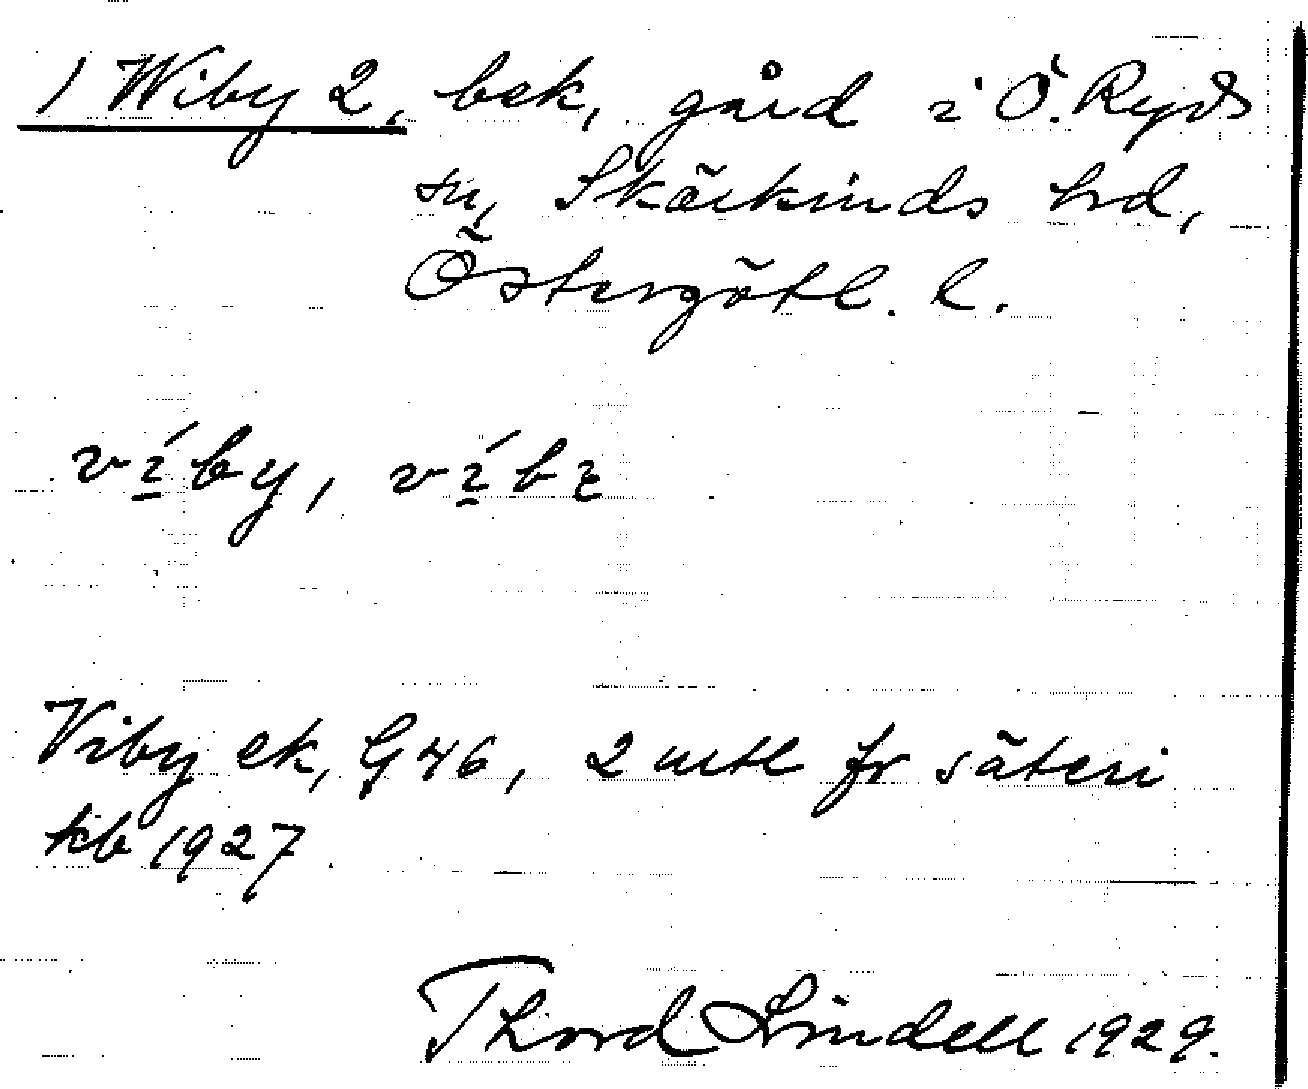 1 Wiby 2, bek, gård i Ö. Ryds
sn, Skärkinds hrd,
Östergötl. l.
víby, víbe
Viby ek, G 46, 2 mtl fr säteri
kb 1927
Thord Lindell 1929.